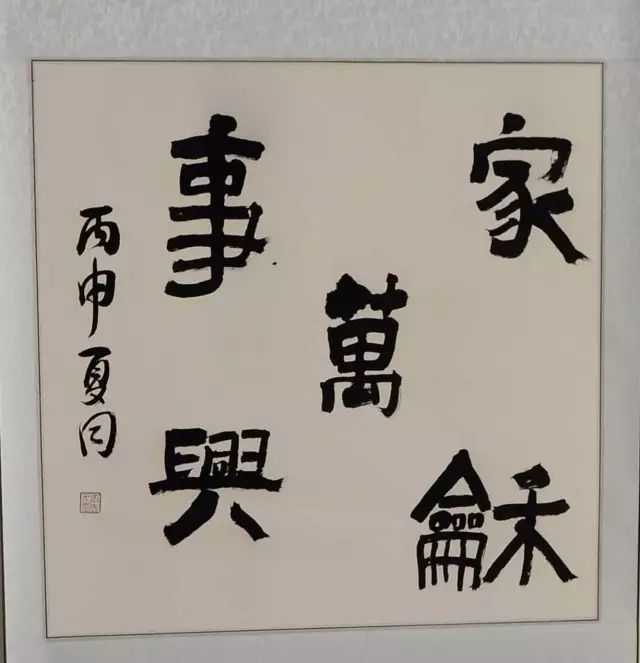 家龢
萬
事興
丙申夏月